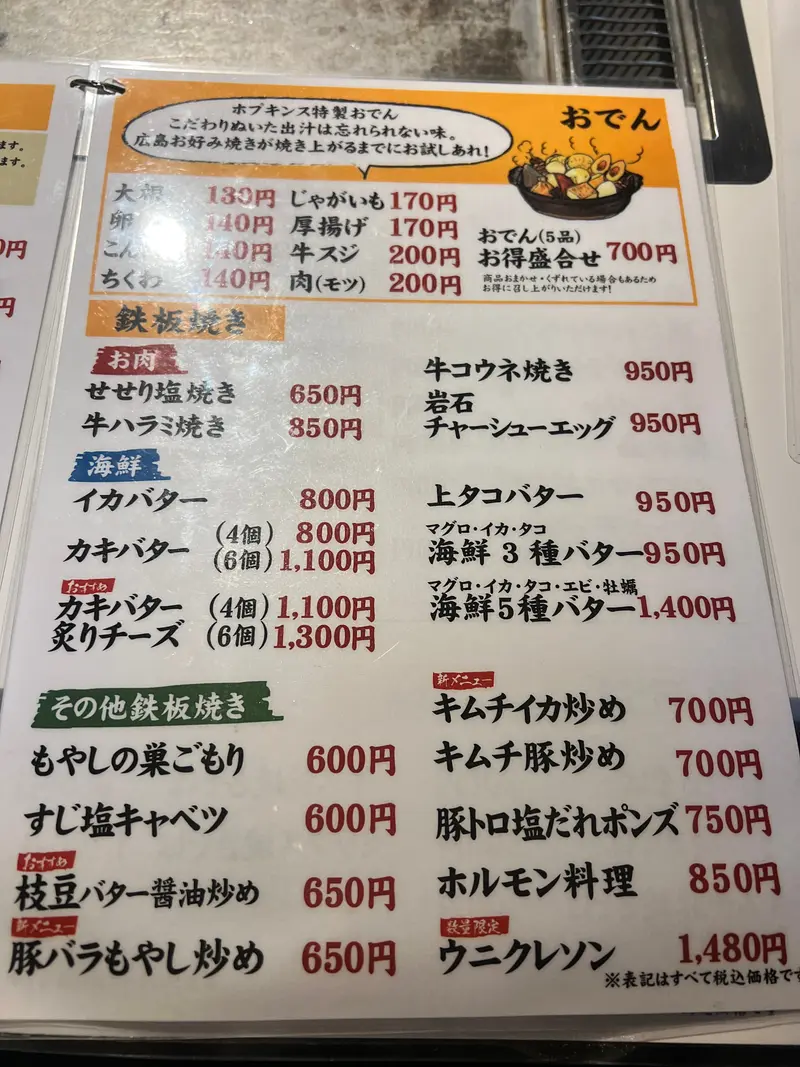 ます。
ます。
0円
円
ホプキンス特製おでん
こだわりぬいた出汁は忘れられない味。
広島お好み焼きが焼き上がるまでにお試しあれ!
おでん
大根 130円
卵 140円
こん 140円
ちくわ 140円
じゃがいも 170円
厚揚げ 170円
牛スジ 200円
肉(モツ) 200円
おでん(5品)
お得盛合せ 700円
商品おまかせ・くずれている場合もあるため
お得に召し上がりいただけます!
鉄板焼き
お肉
せせり塩焼き 650円
牛ハラミ焼き 850円
牛コウネ焼き 950円
岩石
チャーシューエッグ 950円
海鮮
イカバター 800円
カキバター (4個) 800円
(6個) 1,100円
おすすめ
カキバター (4個) 1,100円
炙りチーズ (6個) 1,300円
上タコバター 950円
マグロ・イカ・タコ
海鮮3種バター 950円
マグロ・イカ・タコ・エビ・牡蠣
海鮮5種バター 1,400円
その他鉄板焼き
もやしの巣ごもり 600円
すじ塩キャベツ 600円
おすすめ
枝豆バター醤油炒め 650円
新メニュー
豚バラもやし炒め 650円
新メニュー
キムチイカ炒め 700円
キムチ豚炒め 700円
豚トロ塩だれポンズ 750円
ホルモン料理 850円
数量限定
ウニクレソン 1,480円
※表記はすべて税込価格です